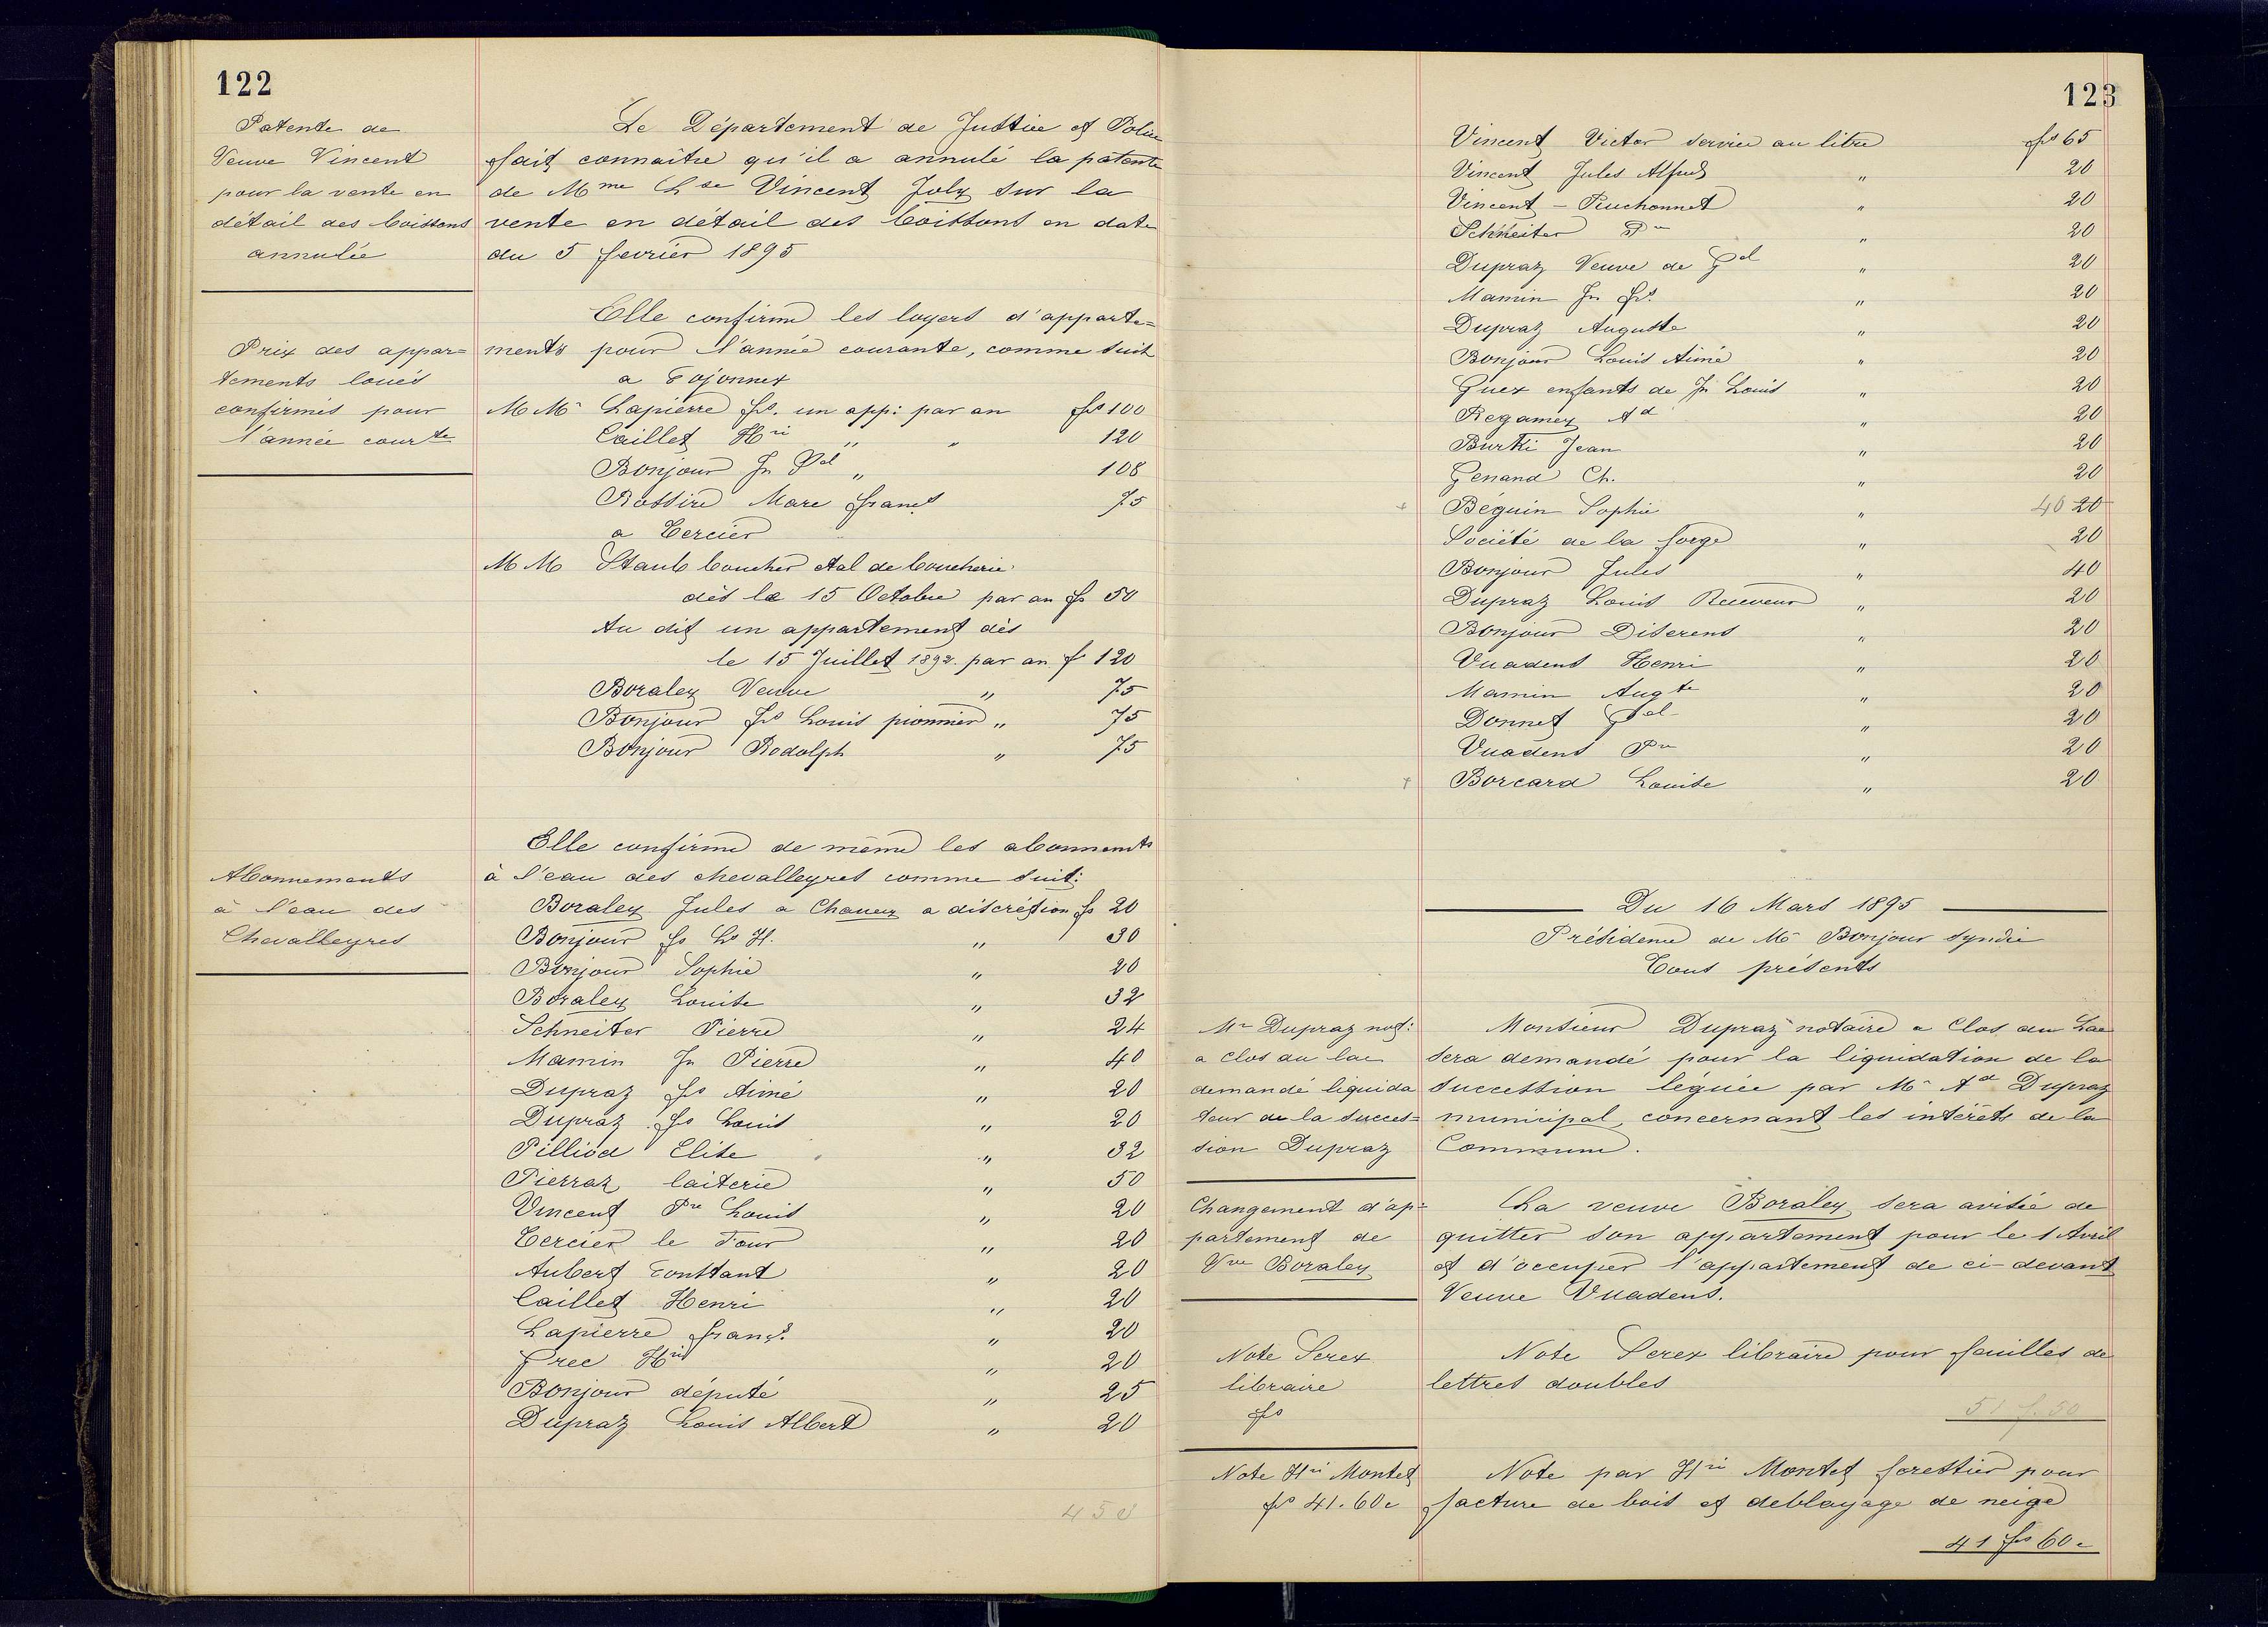 122
Patente de
Veuve Vincent
pour la vente en
détail des boissons
annulée
Le Département de Justice et Police
fait connaître qu'il a annulé la patente
de Mme Lse Vincent Joly sur la
vente en détail des boissons en date
du 5 fevrier 1895
Prix des appar=
tements loués
confirmés pour
l'année courte
Elle confirme les loyers d'apparte=
ments pour l'année courante, comme suit
a Cojonnex
M Mrs Lapierre frs. un app: par an frs 100
Caillet Hri " " 120
Bonjour Jn Del " 108
Rossire Marc francs 75
a Cercier
M M Staub boucher étal de boucherie
dès le 15 Octobre par an fs 50
Au dit un appartement dès
le 15 Juillet 1892. par an f 120
Boraley Veuve " 75
Bonjour frs Louis pionnier " 75
Bonjour Rodolph " 75
Abonnements
à l'eau des
Chevalleyres
Elle confirme de même les abonnemts
à l'eau des chevalleyres comme suit:
Boraley Jules a Chaucey a discrétion fs 20
Bonjour fs Ls H. " 30
Bonjour Sophie " 20
Boraley Louise " 32
Schneiter Pierre " 24
Mamin Jn Pierre " 40
Dupraz fs Aimé " 20
Dupraz fs Louis " 20
Pilliod Elise " 32
Pierraz laiterie " 50
Vincent Pre Louis " 20
Cercier le Four " 20
Aubert Constant " 20
Caillet Henri " 20
Lapierre franç.s " 20
Grec Hri " 20
Bonjour député " 25
Dupraz Louis Albert " 20
453
123
Vincent Victor service au litre frs 65
Vincent Jules Alfred " 20
Vincent - Peuchonnet " 20
Schneiter Pre " 20
Dupraz Veuve de Gel " 20
Mamin Jn frs " 20
Dupraz Auguste " 20
Bonjour Louis Aimé " 20
Guex enfants de Jn Louis " 20
Regamey Ad " 20
Burki Jean " 20
Genand Ch. " 20
+ Béguin Sophie " 40 20
Société de la forge " 20
Bonjour Jules " 40
Dupraz Louis Receveur " 20
Bonjour Diserens " 20
Vuadens Henri " 20
Mamin Augte " 20
Donnet Gel " 20
Vuadens Pre " 20
+ Borcard Louise " 20
Du 16 Mars 1895
Présidence de Mr Bonjour syndic
Tous présents
Mr Dupraz not:
a clos du lac
demandé liquida
teur de la succes=
sion Dupraz
Monsieur Dupraz notaire a Clos du Lac
sera demandé pour la liquidation de la
succession léguée par Mr Ad Dupraz
municipal, concernant les intérêts de la
Commune.
Changement d'ap=
partement de
Vve Boraley
La veuve Boraley sera avisée de
quitter son appartement pour le 1 Avril
et d'occuper l'appartement de ci-devant
Veuve Vuadens.
Note Serex
libraire
frs
Note Serex libraire pour feuilles de
lettres doubles
51 f. 50
Note Hri Montet
frs 41.60 c
Note par Hri Montet forestier pour
facture de bois et deblayage de neige
41 frs 60 c